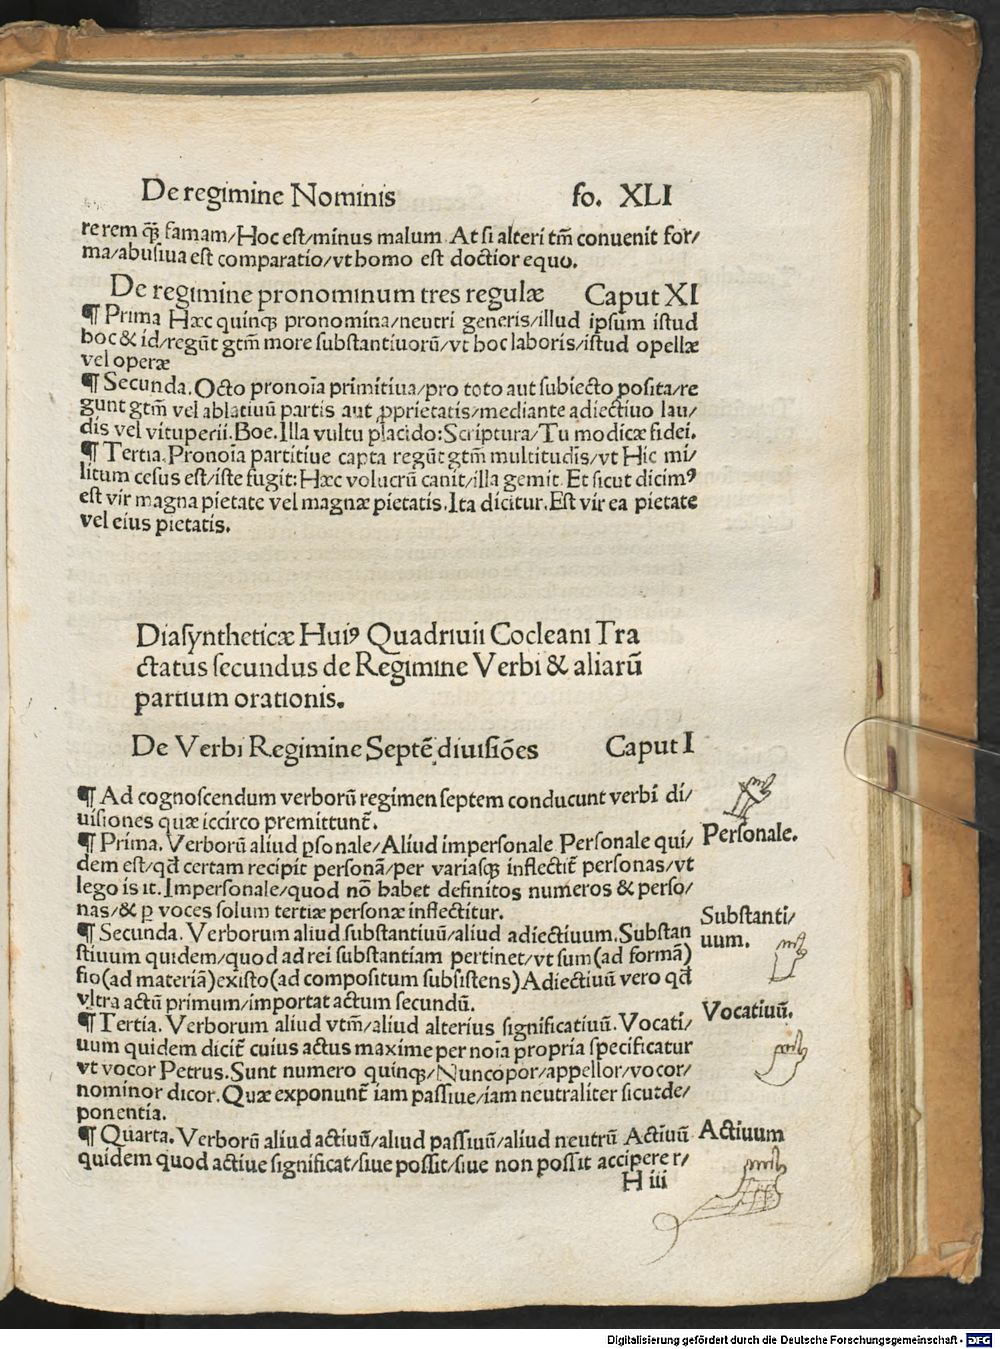 De regimine Nominis fo. XLI
rerem q̃ꝫ famam/Hoc est/minus malum. At si alteri tm̃ conuenit for/
ma/abusiua est comparatio/vt homo est doctior equo.
De regimine pronominum tres regulæ Caput XI
¶ Prima Hæc quinqꝫ pronomina/neutri generis/illud ipsum istud
hoc & id/regūt gtm̃ more substantiuorū/vt hoc laboris/istud opellæ
vel operæ
¶ Secunda. Octo pronoīa primitiua/pro toto aut subiecto posita/re
gunt gtm̃ vel ablatiuū partis aut ꝓprietatis/mediante adiectiuo lau/
dis vel vituperii. Boe. Illa vultu placido: Scriptura/Tu modicæ fidei.
¶ Tertia. Pronoīa partitiue capta regūt gtm̃ multitudīs/vt Hic mi/
litum cesus est/iste fugit: Hæc volucrū canit/illa gemit. Et sicut dicimꝰ
est vir magna pietate vel magnæ pietatis. Ita dicitur. Est vir ea pietate
vel eius pietatis.
Diasyntheticæ Huiꝰ Quadriuii Cocleani Tra
ctatus secundus de Regimine Verbi & aliarū
partium orationis.
De Verbi Regimine Septē diuisiões Caput I
¶ Ad cognoscendum verborū regimen septem conducunt verbi di/
uisiones quæ iccirco premittunt̃.
¶ Prima. Verborū aliud ꝑsonale/Aliud impersonale Personale qui/
dem est/qd̃ certam recipit personā/per variasqꝫ inflectit̃ personas/vt
lego is it. Impersonale/quod nō habet definitos numeros & perso/
nas/& ꝑ voces solum tertiæ personæ inflectitur.
Personale.
¶ Secunda. Verborum aliud substantiuū/aliud adiectiuum. Substan
stiuum quidem/quod ad rei substantiam pertinet/vt sum (ad formā)
fio (ad materiā) existo (ad compositum subsistens) Adiectiuū vero qd̃
vltra actū primum/importat actum secundū.
Substanti/
uum.
¶ Tertia. Verborum aliud vtm̃/aliud alterius significatiuū. Vocati/
uum quidem dicit̃ cuius actus maxime per noīa propria specificatur
vt vocor Petrus. Sunt numero quinqꝫ/Nuncopor/appellor/vocor/
nominor dicor. Quæ exponunt̃ iam passiue/iam neutraliter sicut de/
ponentia.
Vocatiuū.
¶ Quarta. Verborū aliud actiuū/aliud passiuū/aliud neutrū Actiuū
quidem quod actiue significat/siue possit/siue non possit accipere r/
Actiuum
H iii
Digitalisierung gefördert durch die Deutsche Forschungsgemeinschaft - DFG